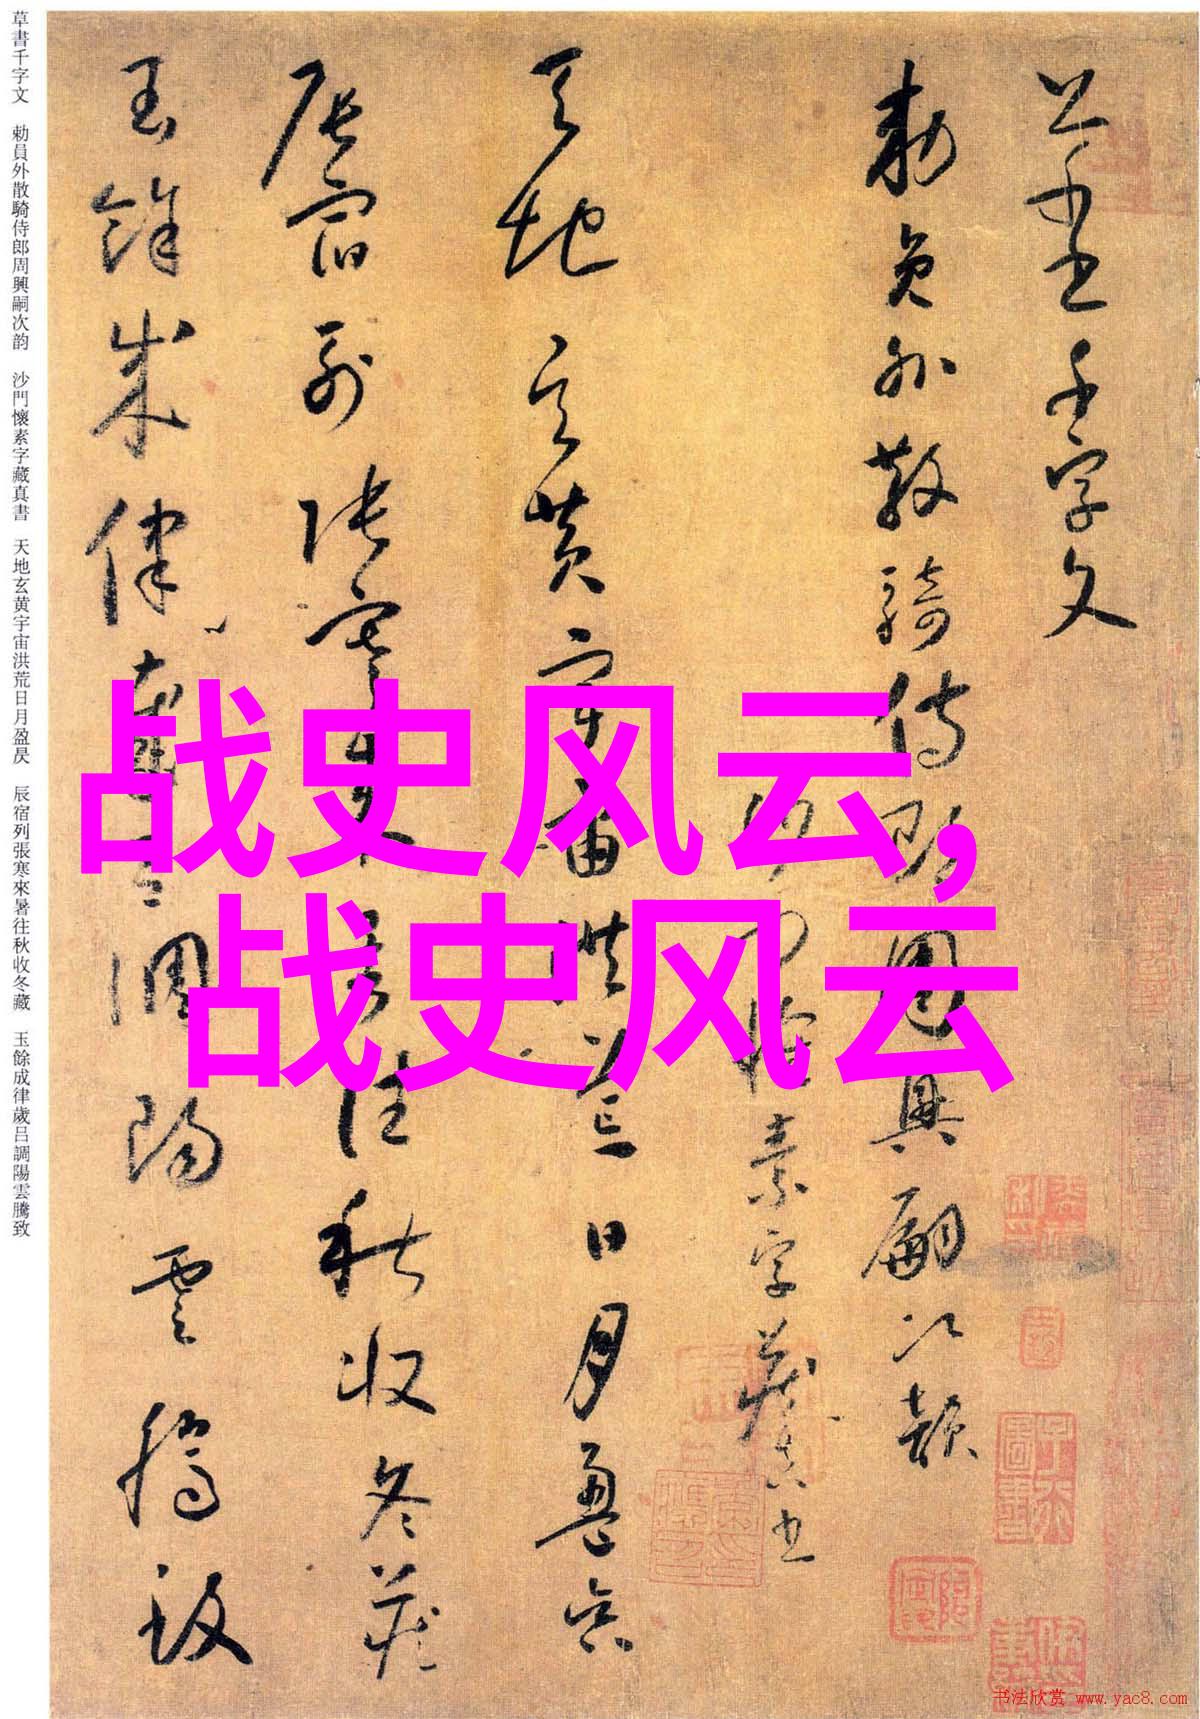 草書千字文 勅員外散騎侍郎周興嗣次韵 沙門懷素字藏真書 天地玄黄宇宙洪荒日月盈昃 辰宿列張寒來暑往秋收冬藏 玉餘成律歲吕調陽雲騰致
草書千字文
勅員外散騎侍郎周興嗣次韵
沙門懷素字藏真書
天地玄黄宇宙洪荒日月盈昃
辰宿列張寒來暑往秋收冬藏
玉餘成律歲吕調陽雲騰致
战史风云,
战史风云
书法欣赏 www.yac8.com